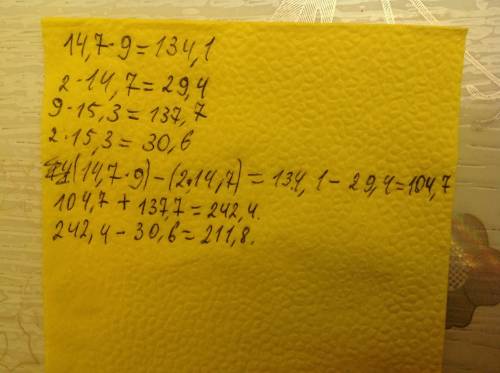 14,7·9=134,1
2·14,7=29,4
9·15,3=137,7
2·15,3=30,6
(14,7·9)-(2·14,7)=134,1-29,4=104,7
104,7+137,7=242,4.
242,4-30,6=211,8.